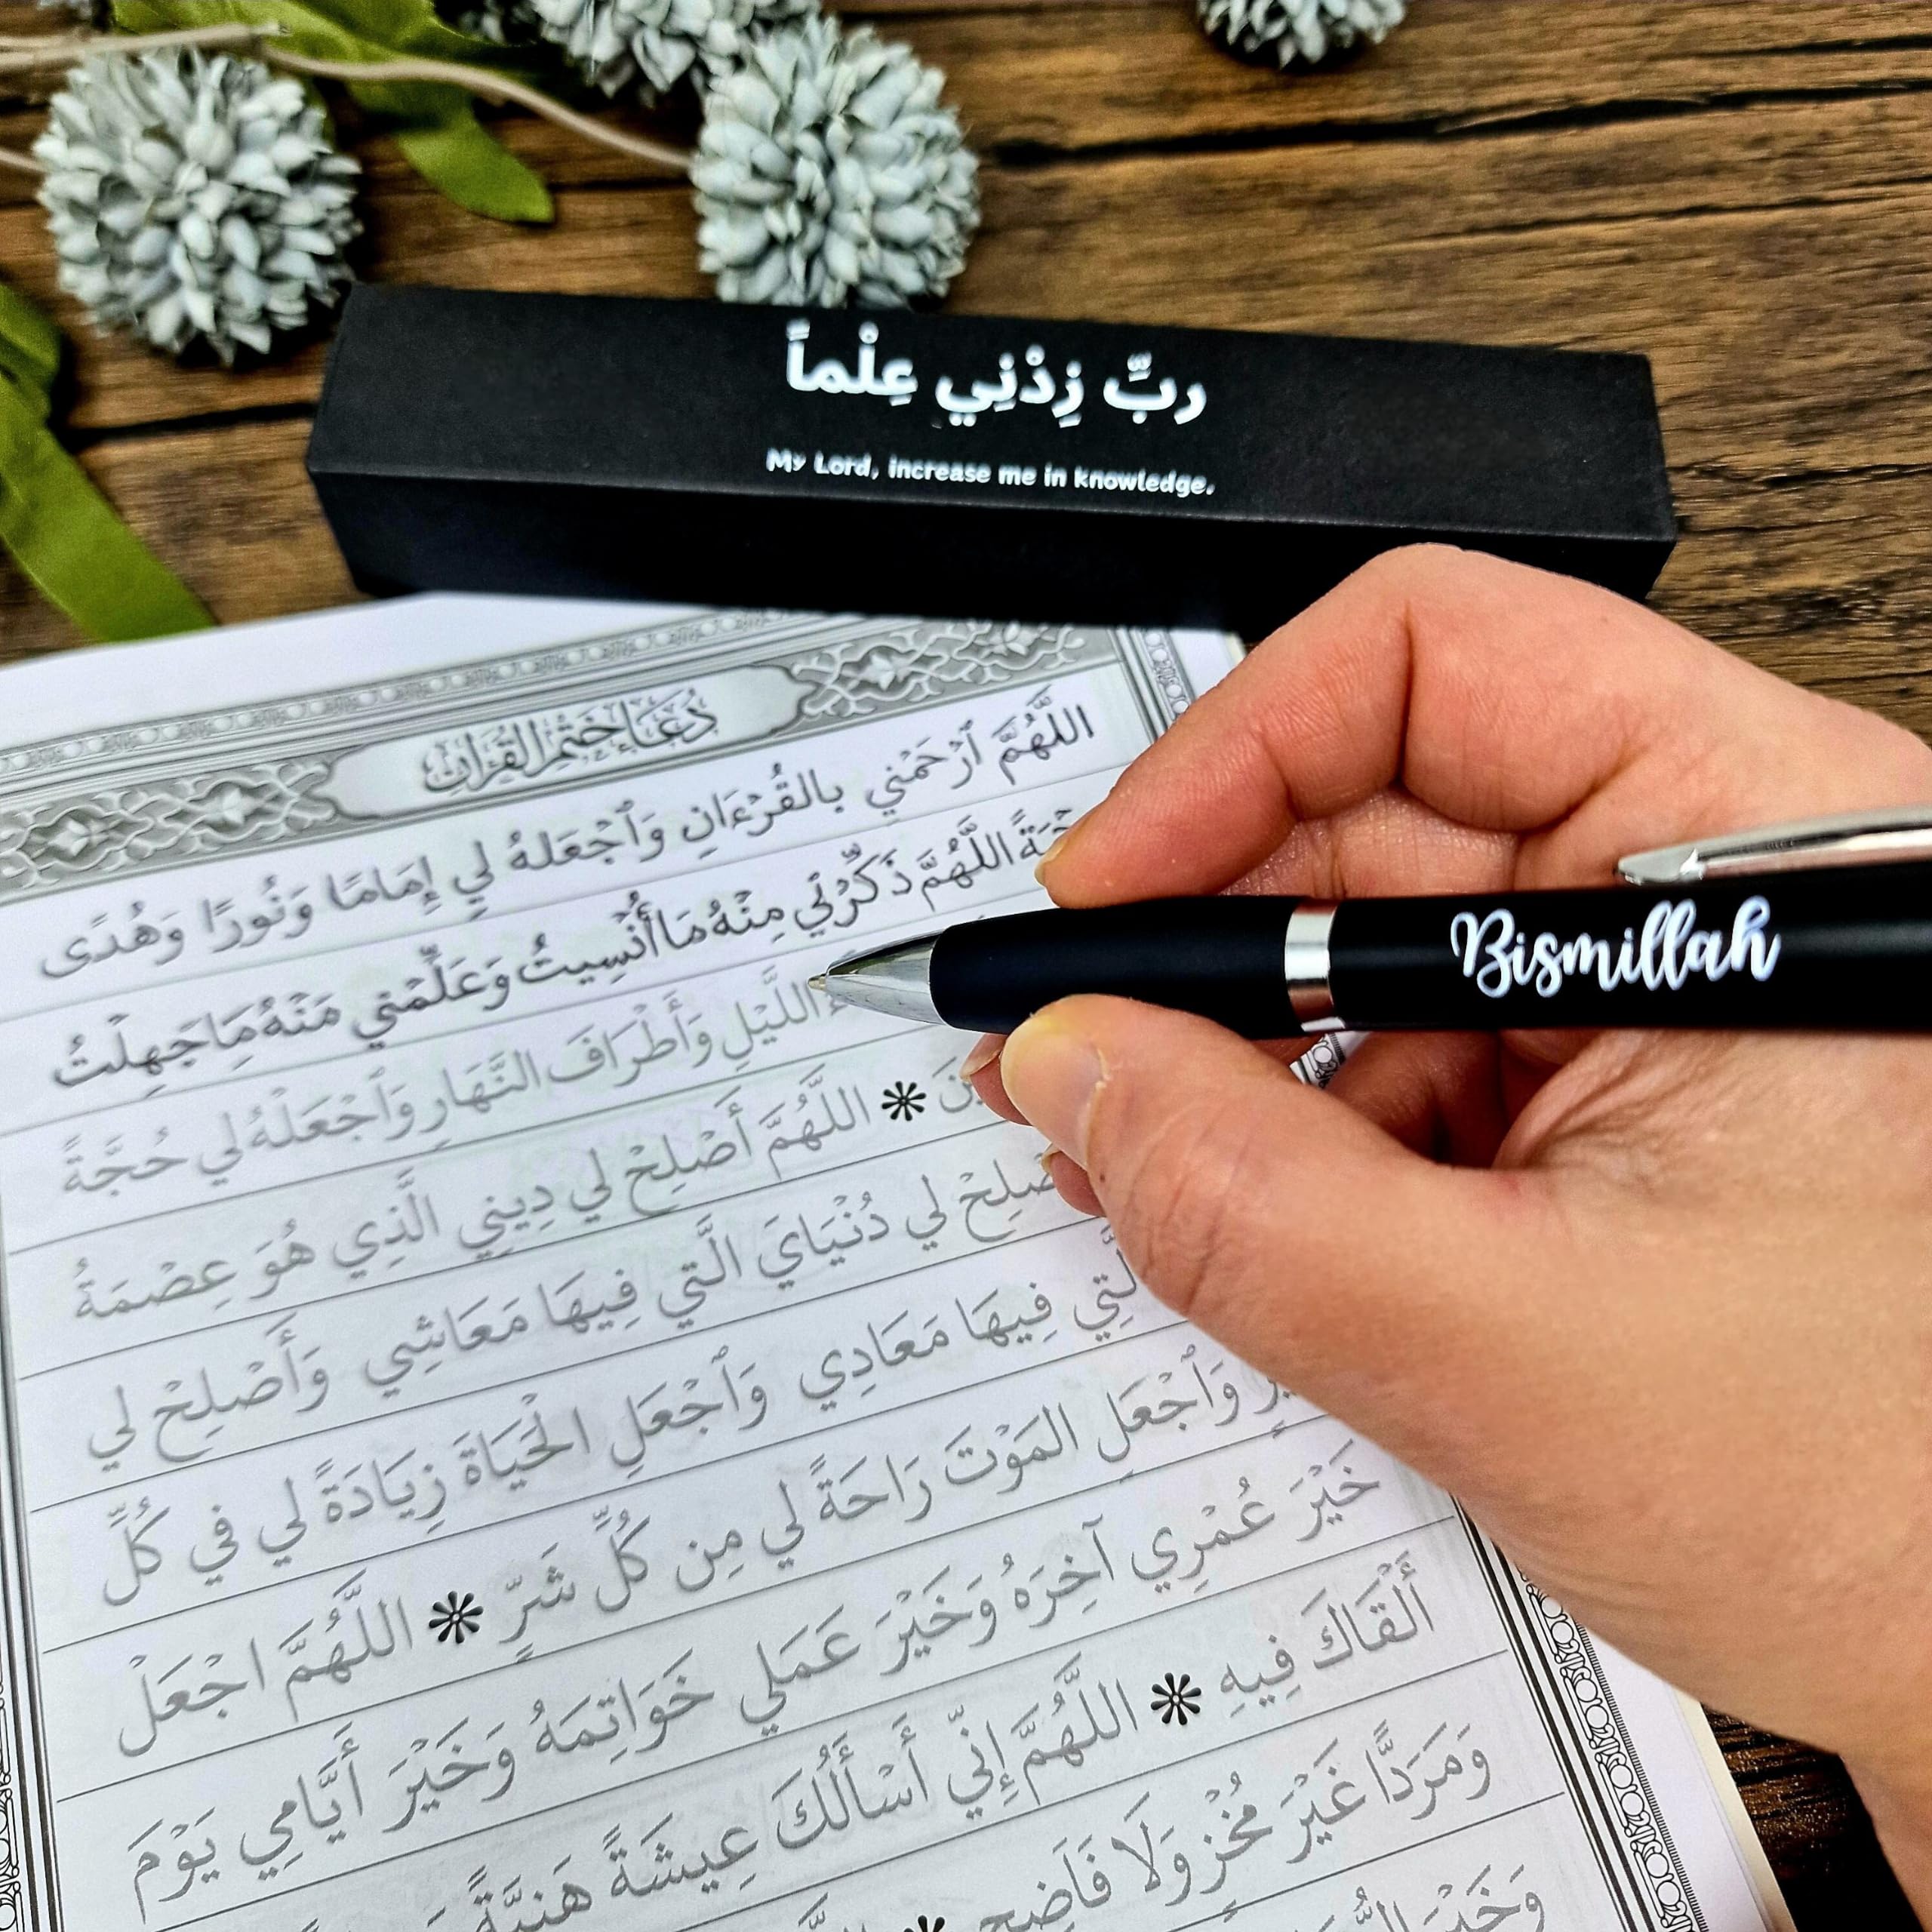 ربِّ زِدْنِي عِلْماً
My Lord, increase me in knowledge.
Bismillah
دُعَاءُ خَتْمِ الْقُرْآنِ
اللَّهُمَّ ٱرْحَمْنِي بالقُرْءَانِ وَٱجْعَلهُ لِي إِمَامًا وَنُورًا وَهُدًى
اللَّهُمَّ ذَكِّرْنِي مِنْهُ مَا أُنْسِيتُ وَعَلِّمْنِي مَنْهُ مَا جَهِلْتُ
اللَّيْلِ وَأَطْرَافَ النَّهَارِ وَٱجْعَلْهُ لِي حُجَّةً
اللَّهُمَّ أَصْلِحْ لِي دِينِي الَّذِي هُوَ عِصْمَةُ
لِي دُنْيَايَ الَّتِي فِيهَا مَعَاشِي وَأَصْلِحْ لِي
فِيهَا مَعَادِي وَٱجْعَلِ الْحَيَاةَ زِيَادَةً لِي فِي كُلِّ
وَٱجْعَلِ المَوْتَ رَاحَةً لِي مِن كُلِّ شَرٍّ * اللَّهُمَّ اجْعَلْ
خَيْرَ عُمْرِي آخِرَهُ وَخَيْرَ عَمَلِي خَوَاتِمَهُ وَخَيْرَ أَيَّامِي يَوْمَ
أَلْقَاكَ فِيهِ * اللَّهُمَّ إِنِّي أَسْأَلُكَ عِيشَةً هَنِيَّةً
وَمَرَدًّا غَيْرَ مُخْزٍ وَلَا فَاضِحٍ
وَخَيْرَ